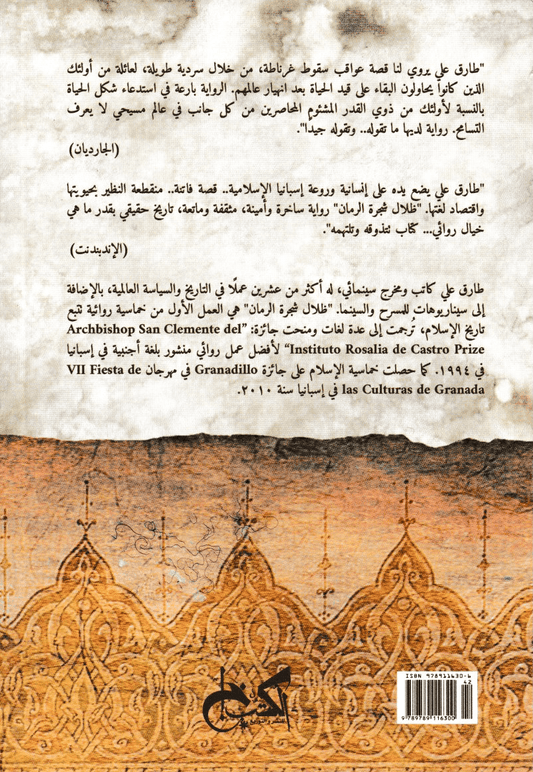 "طارق علي يروي لنا قصة عواقب سقوط غرناطة، من خلال سردية طويلة، لعائلة من أولئك
الذين كانوا يحاولون البقاء على قيد الحياة بعد انهيار عالمهم. الرواية بارعة في استدعاء شكل الحياة
بالنسبة لأولئك من ذوي القدر المشئوم المحاصرين من كل جانب في عالم مسيحي لا يعرف
التسامح. رواية لديها ما تقوله.. وتقوله جيدًا".
(الجارديان)
"طارق علي يضع يده على إنسانية وروعة إسبانيا الإسلامية.. قصة فاتنة.. منقطعة النظير بحيويتها
واقتصاد لغتها. "ظلال شجرة الرمان" رواية ساخرة وأمينة، مثقفة وماتعة، تاريخ حقيقي بقدر ما هي
خيال روائي... كتاب تتذوقه وتلتهمه".
(الإندبندنت)
طارق علي كاتب ومخرج سينمائي، له أكثر من عشرين عملًا في التاريخ والسياسة العالمية، بالإضافة
إلى سيناريوهات للمسرح والسينما. "ظلال شجرة الرمان" هي العمل الأول من خماسية روائية تتبع
تاريخ الإسلام، تُرجمت إلى عدة لغات ومنحت جائزة: "Archbishop San Clemente del
Instituto Rosalia de Castro Prize" لأفضل عمل روائي منشور بلغة أجنبية في إسبانيا
في ١٩٩٤. كما حصلت خماسية الإسلام على جائزة Granadillo في مهرجان VII Fiesta de
las Culturas de Granada في إسبانيا سنة ٢٠١٠.
الكتب خان
للنشر والتوزيع
ISBN 978911630-6
42
9789789116300